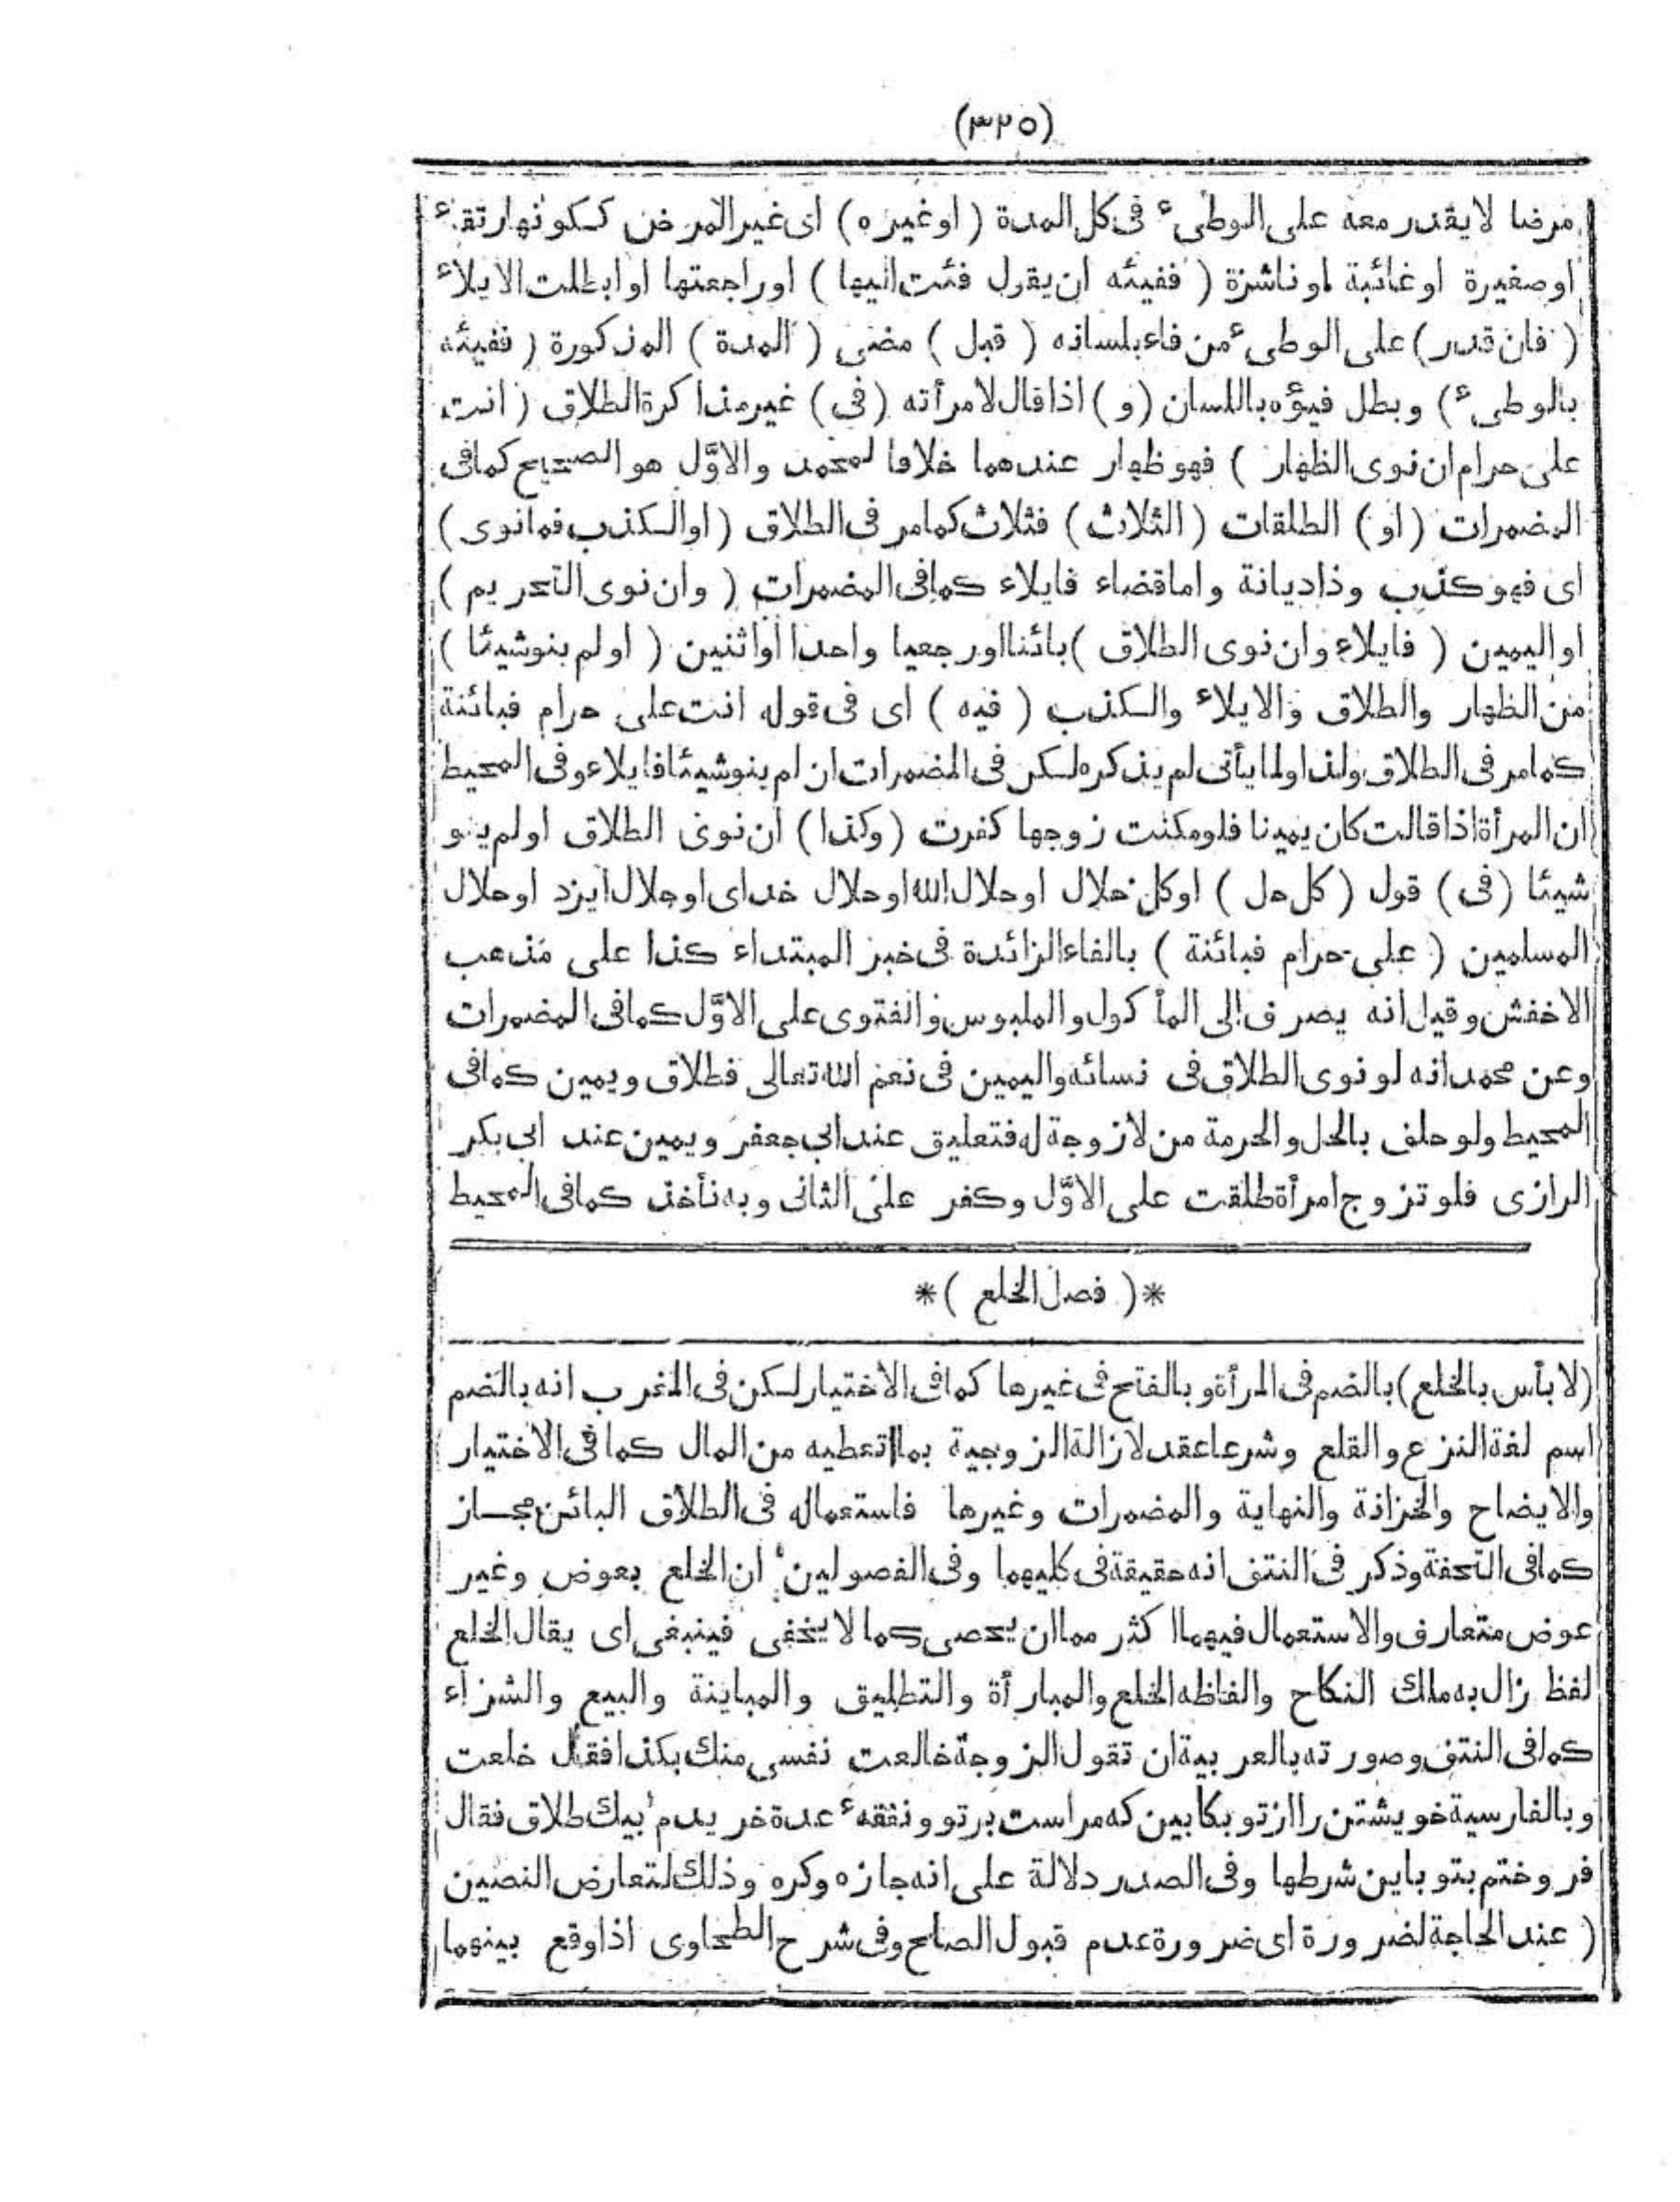 (٣٢٥)
مرضا لا يقدر معه على الوطىء فى كل المدة (اوغيره) اى غير المرض ككونها رتقاء
اوصغيرة اوغائبة اوناشزة (ففيئه ان يقول فئت اليها) اوراجعتها اوابطلت الايلاء
(فان قدر) على الوطىء من فاء بلسانه (قبل) مضى (المدة) المذكورة (ففيئه
بالوطىء) وبطل فيؤه باللسان (و) اذا قال لامرأته (فى) غير مذاكرة الطلاق (انت
على حرام ان نوى الظهار) فهو ظهار عندهما خلافا لمحمد والاوّل هو الصحيح كمافى
المضمرات (او) الطلقات (الثلاث) فثلاث كمامر فى الطلاق (اوالكذب فمانوى)
اى فهو كذب وذا ديانة واما قضاء فايلاء كمافى المضمرات (وان نوى التحريم)
اواليمين (فايلاء وان نوى الطلاق) بائنا اورجعيا واحدا اواثنين (اولم ينو شيئا)
من الظهار والطلاق والايلاء والكذب (فيه) اى فى قوله انت على حرام فبائنة
كمامر فى الطلاق ولذا ولما يأتى لم يذكره لكن فى المضمرات ان لم ينو شيئا فايلاء وفى المحيط
ان المرأة اذا قالت كان يمينا فلومكنت زوجها كفرت (وكذا) ان نوى الطلاق اولم ينو
شيئا (فى) قول (كل حل) اوكل حلال اوحلال الله اوحلال خداى اوحلال ايزد اوحلال
المسلمين (على حرام فبائنة) بالفاء الزائدة فى خبر المبتداء كذا على مذهب
الاخفش وقيل انه يصرف الى المأكول والملبوس والفتوى على الاوّل كمافى المضمرات
وعن محمد انه لو نوى الطلاق فى نسائه واليمين فى نعم الله تعالى فطلاق ويمين كمافى
المحيط ولو حلف بالحل والحرمة من لا زوجة له فتعليق عند ابى جعفر ويمين عند ابى بكر
الرازى فلو تزوج امرأة طلقت على الاوّل وكفر على الثانى وبه نأخذ كمافى المحيط
*(فصل الخلع)*
(لا بأس بالخلع) بالضم فى المرأة وبالفتح فى غيرها كمافى الاختيار لكن فى المغرب انه بالضم
اسم لغة النزع والقلع وشرعا عقد لازالة الزوجية بما تعطيه من المال كمافى الاختيار
والايضاح والخزانة والنهاية والمضمرات وغيرها فاستعماله فى الطلاق البائن مجاز
كمافى التحفة وذكر فى النتف انه حقيقة فى كليهما وفى الفصولين ان الخلع بعوض وغير
عوض متعارف والاستعمال فيهما اكثر مما ان يحصى كما لا يخفى فينبغى اى يقال الخلع
لفظ زال به ملك النكاح والفاظه الخلع والمبارأة والتطليق والمباينة والبيع والشراء
كمافى النتف وصورته بالعربية ان تقول الزوجة خالعت نفسى منك بكذا فقال خلعت
وبالفارسية خويشتن را ازتو بكابين كه مراست برتو ونفقهء عدة خريدم بيك طلاق فقال
فروختم بتو باين شرطها وفى الصدر دلالة على انه جازه وكره وذلك لتعارض النصين
(عند الحاجة لضرورة اى ضرورة عدم قبول الصلح وفى شرح الطحاوى اذا وقع بينهما